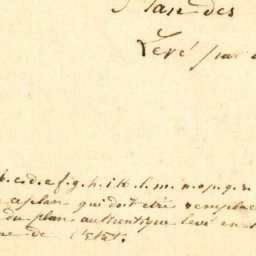 Plan des
Levé par
b.c.d.e.f.g.h.i.k.l.m.n.o.p.q.r.
ce plan qui doit être remplacé
du plan authentique levé en
de l'Etat.